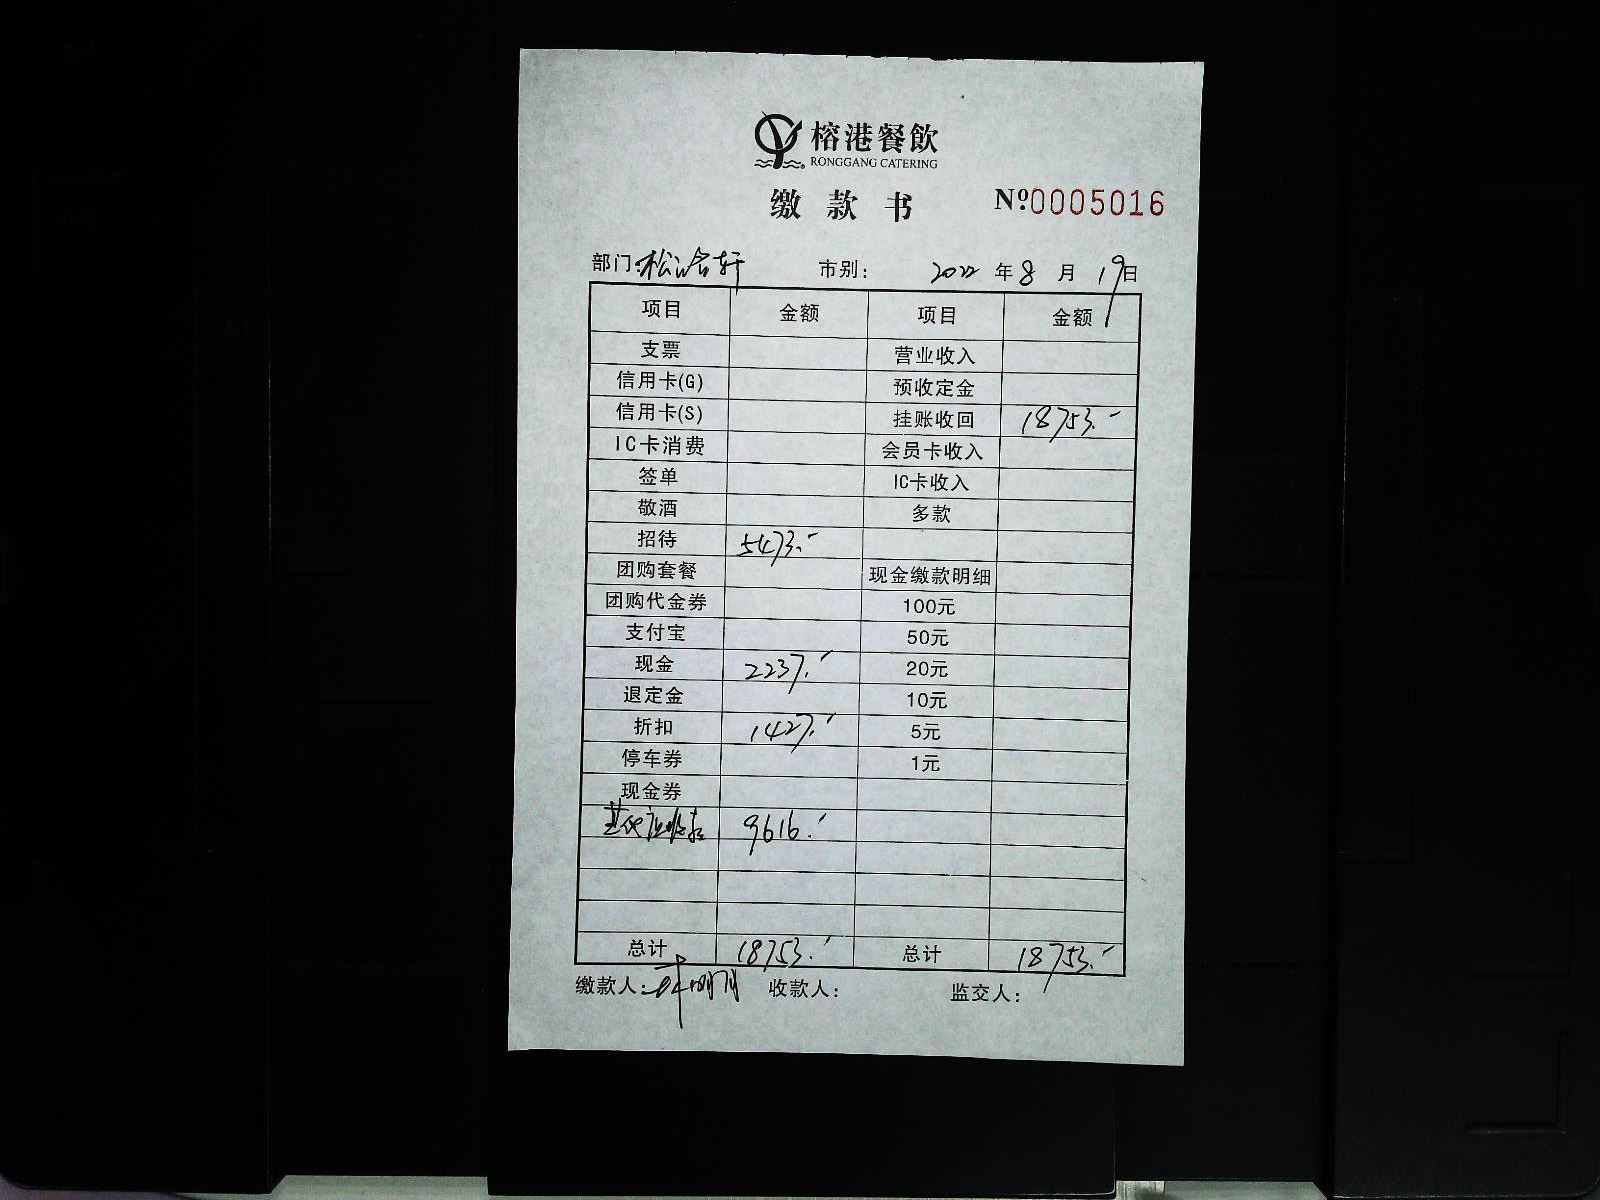 榕港餐飲
RONGGANG CATERING
缴款书 №0005016
部门: 松 轩 市别: 2022年8月19日
项目 金额 项目 金额
支票 营业收入
信用卡(G) 预收定金
信用卡(S) 挂账收回 18753.-
IC卡消费 会员卡收入
签单 IC卡收入
敬酒 多款
招待 5473.-
团购套餐 现金缴款明细
团购代金券 100元
支付宝 50元
现金 2237.- 20元
退定金 10元
折扣 1427.- 5元
停车券 1元
现金券
9616.-
总计 18753.- 总计 18753.-
缴款人: 收款人: 监交人: